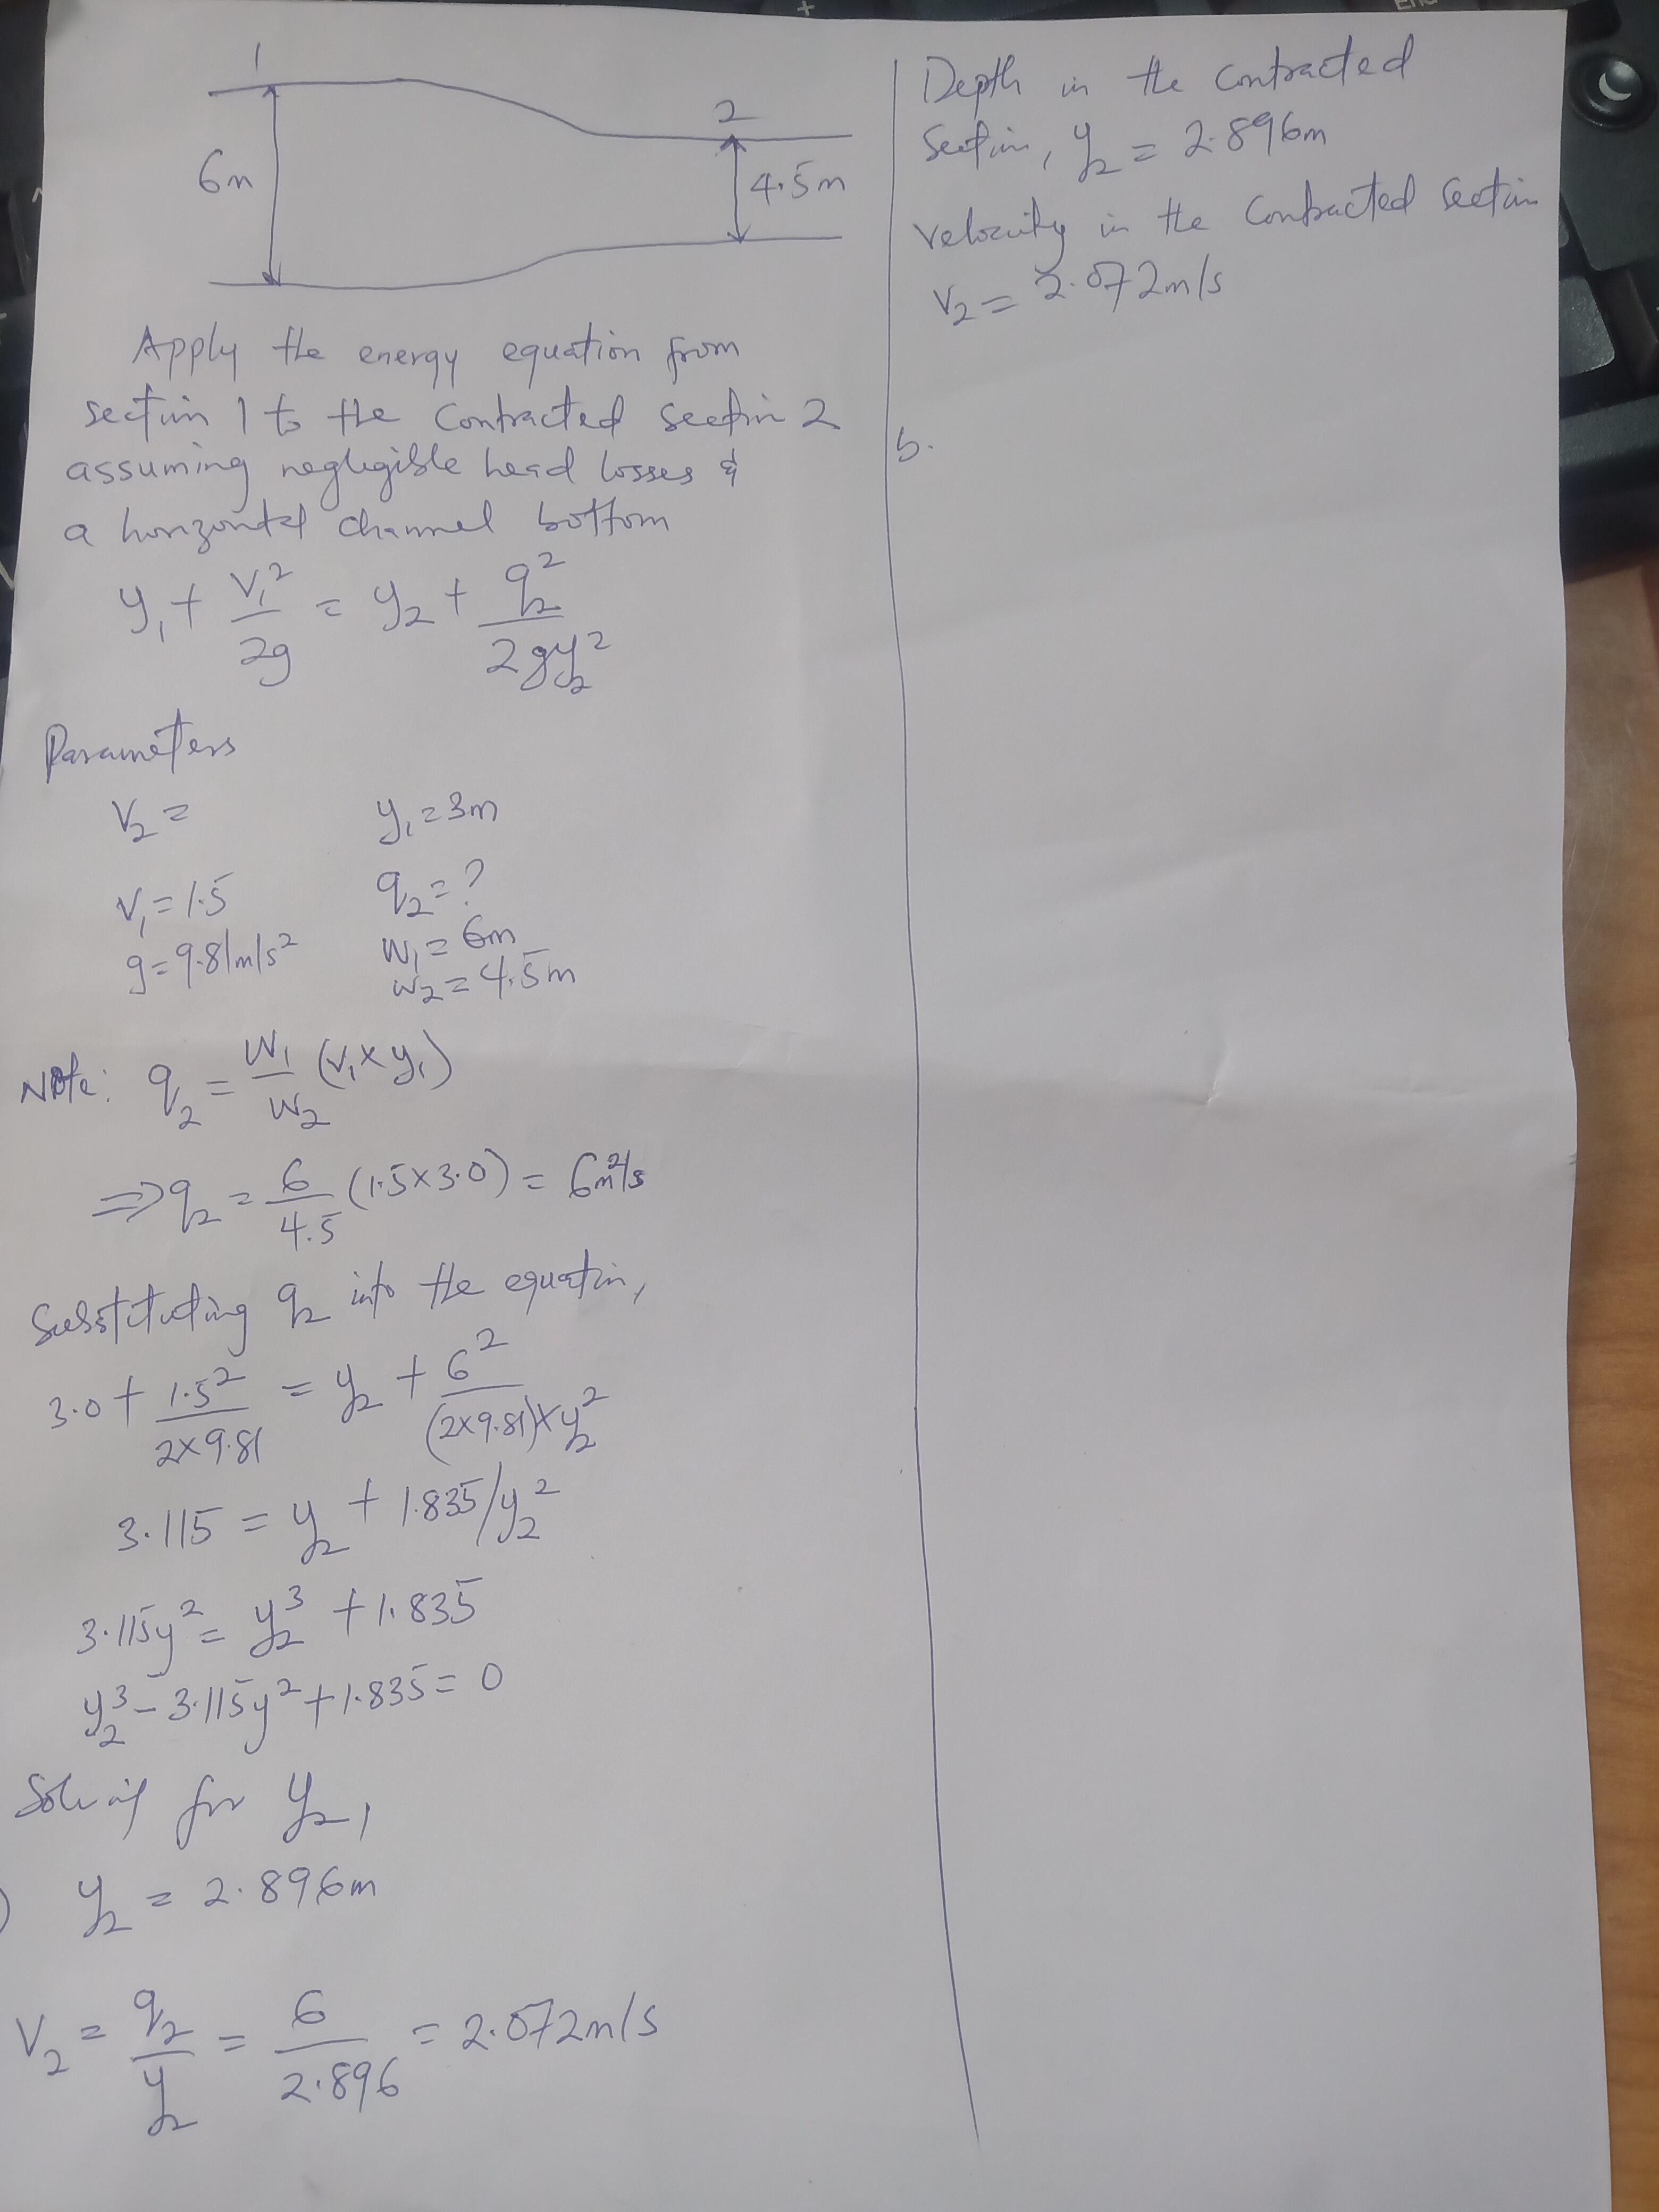 1
2
6m
4.5m
Apply the energy equation from
section 1 to the contracted section 2
assuming negligible head losses &
a horizontal channel bottom
y₁ + V₁²/2g = y₂ + q₂²/2gy₂²
Parameters
V₂ =
y₁ = 3m
V₁ = 1.5
q₂ = ?
g = 9.81m/s²
W₁ = 6m
W₂ = 4.5m
Note: q₂ = W₁/W₂ (V₁ x y₁)
=> q₂ = 6/4.5 (1.5 x 3.0) = 6m²/s
Substituting q₂ into the equation,
3.0 + 1.5²/2x9.81 = y₂ + 6²/(2x9.81)xy₂²
3.115 = y₂ + 1.835/y₂²
3.115y² = y₂³ + 1.835
y₂³ - 3.115y² + 1.835 = 0
Solving for y₂,
y₂ = 2.896m
V₂ = q₂/y₂ = 6/2.896 = 2.072m/s
Depth in the contracted
Section, y₂ = 2.896m
Velocity in the contracted section
V₂ = 2.072m/s
b.